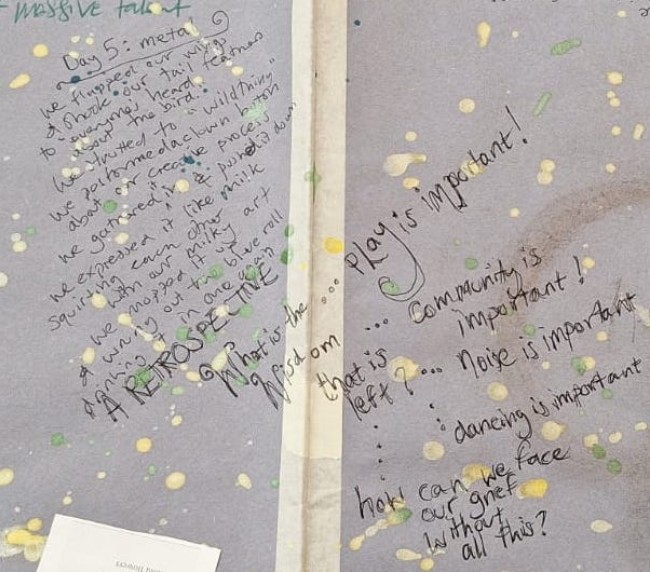 massive talent
Day 5: metal
we flapped our wings
& shook our tail feathers
to everyone's heard
about the bird.
We strutted to "wild thing"
We performed a clown button
about our creative process
we gathered it & pushed it down
we expressed it like milk
squirting each other
with our milky art
We mopped it up
& wrung out the blue roll
drinking it in one again
A RETROSPECTIVE
What is the ...
Wisdom
that is
left?
play is important!
... Community is
important!
... Noise is important
dancing is important
how can we face
our grief
without
all this?
Bowers